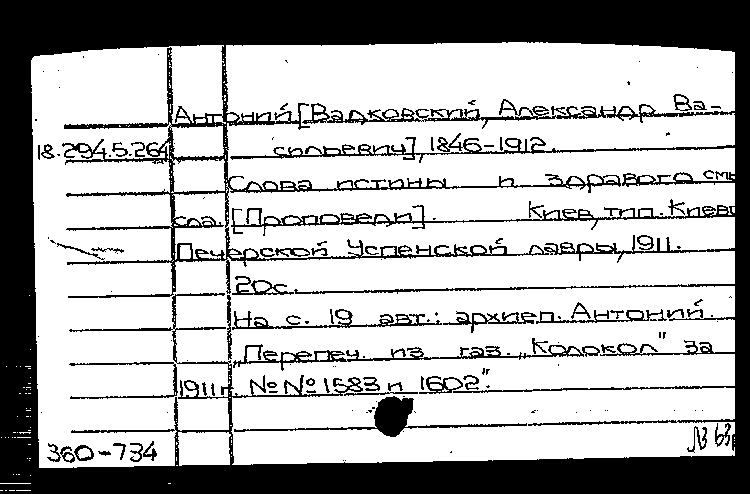 Антоний [Вадковский, Александр Ва-
18.294.5.264 сильевич], 1846-1912.
Слова истины и здравого смы
сла. [Проповеди]. Киев, тип. Киево
Печерской Успенской лавры, 1911.
20с.
На с. 19 авт.: архиеп. Антоний.
„Перепеч. из газ. „Колокол" за
1911 г. №№ 1583 и 1602".
360-734